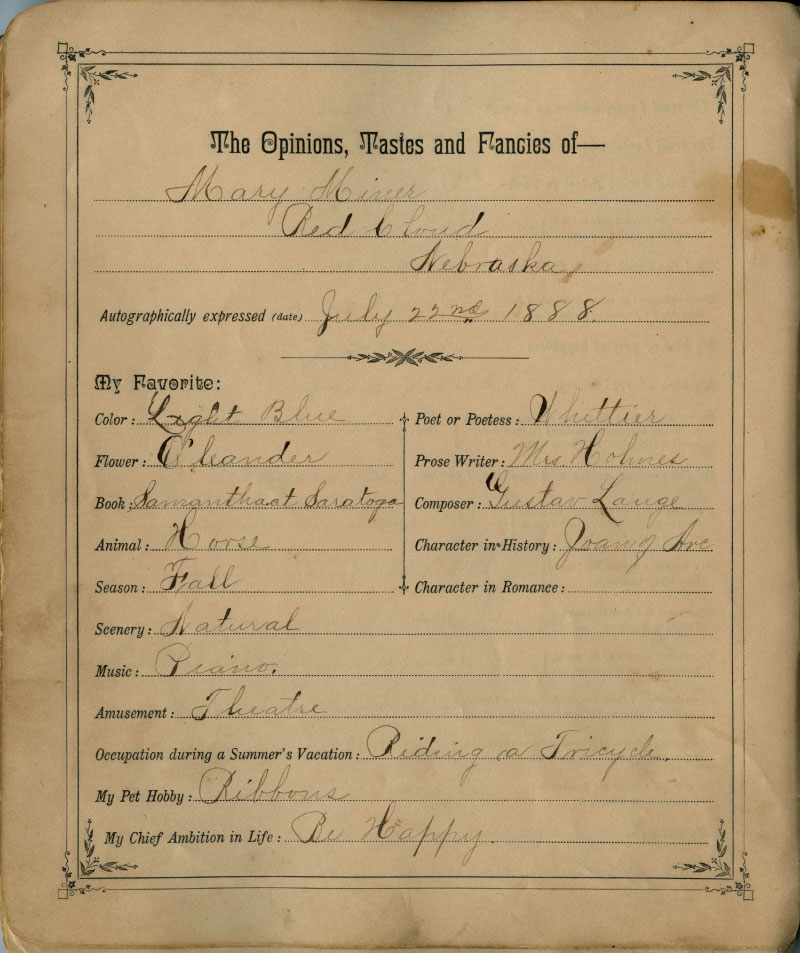 The Opinions, Tastes and Fancies of—
Mary Miner
Red Cloud
Nebraska
Autographically expressed (date) July 22nd 1888.
My Favorite:
Color: Light Blue
Flower: Oleander
Book: Samantha at Saratoga
Animal: Horse
Season: Fall
Poet or Poetess: Whittier
Prose Writer: Mrs Holmes
Composer: Gustav Lange
Character in History: Joan of Arc
Character in Romance:
Scenery: Natural
Music: Piano.
Amusement: Theatre
Occupation during a Summer's Vacation: Riding a Tricycle.
My Pet Hobby: Ribbons
My Chief Ambition in Life: Be Happy.